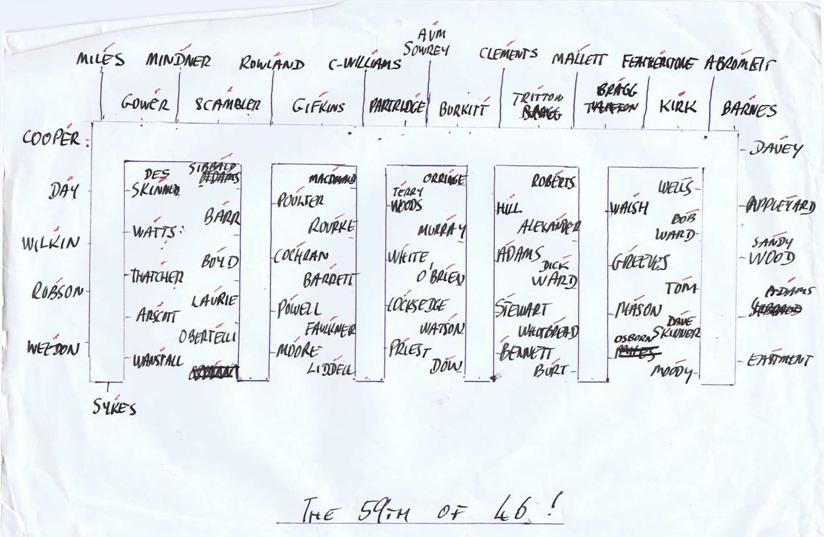 AVM
SOWREY
MILES MINDNER ROWLAND C-WILLIAMS CLEMENTS MALLETT FEATHERSTONE ABROMEIT
GOWER SCAMBLER GIFKINS PARTRIDGE BURKITT TRITTON BRAGG KIRK BARNES
BRAGG
COOPER DAVEY
SIBBALD
ADAMS
DES
SKINNER MACDONALD ORRINGE ROBERTS WELLS
DAY POULTER TERRY
WOODS HILL WALSH APPLEYARD
BARR ROURKE MURRAY ALEXANDER BOB
WARD
WATTS
WILKIN COCHRAN WHITE ADAMS GREEVES SANDY
WOOD
BOYD BARRETT O'BRIEN DICK
WARD TOM
THATCHER
ROBSON LAURIE ADAMS
ARSCOTT POWELL LOCKSEDGE STEWART MASON
OBERTELLI FAULKNER WATSON WHITBREAD DAVE
SKINNER
WELDON MOORE PRIEST BENNETT OSBORN
MILES EASTMENT
WANSTALL LIDDELL DOW BURT MOODY
SYKES
THE 59TH OF 46!